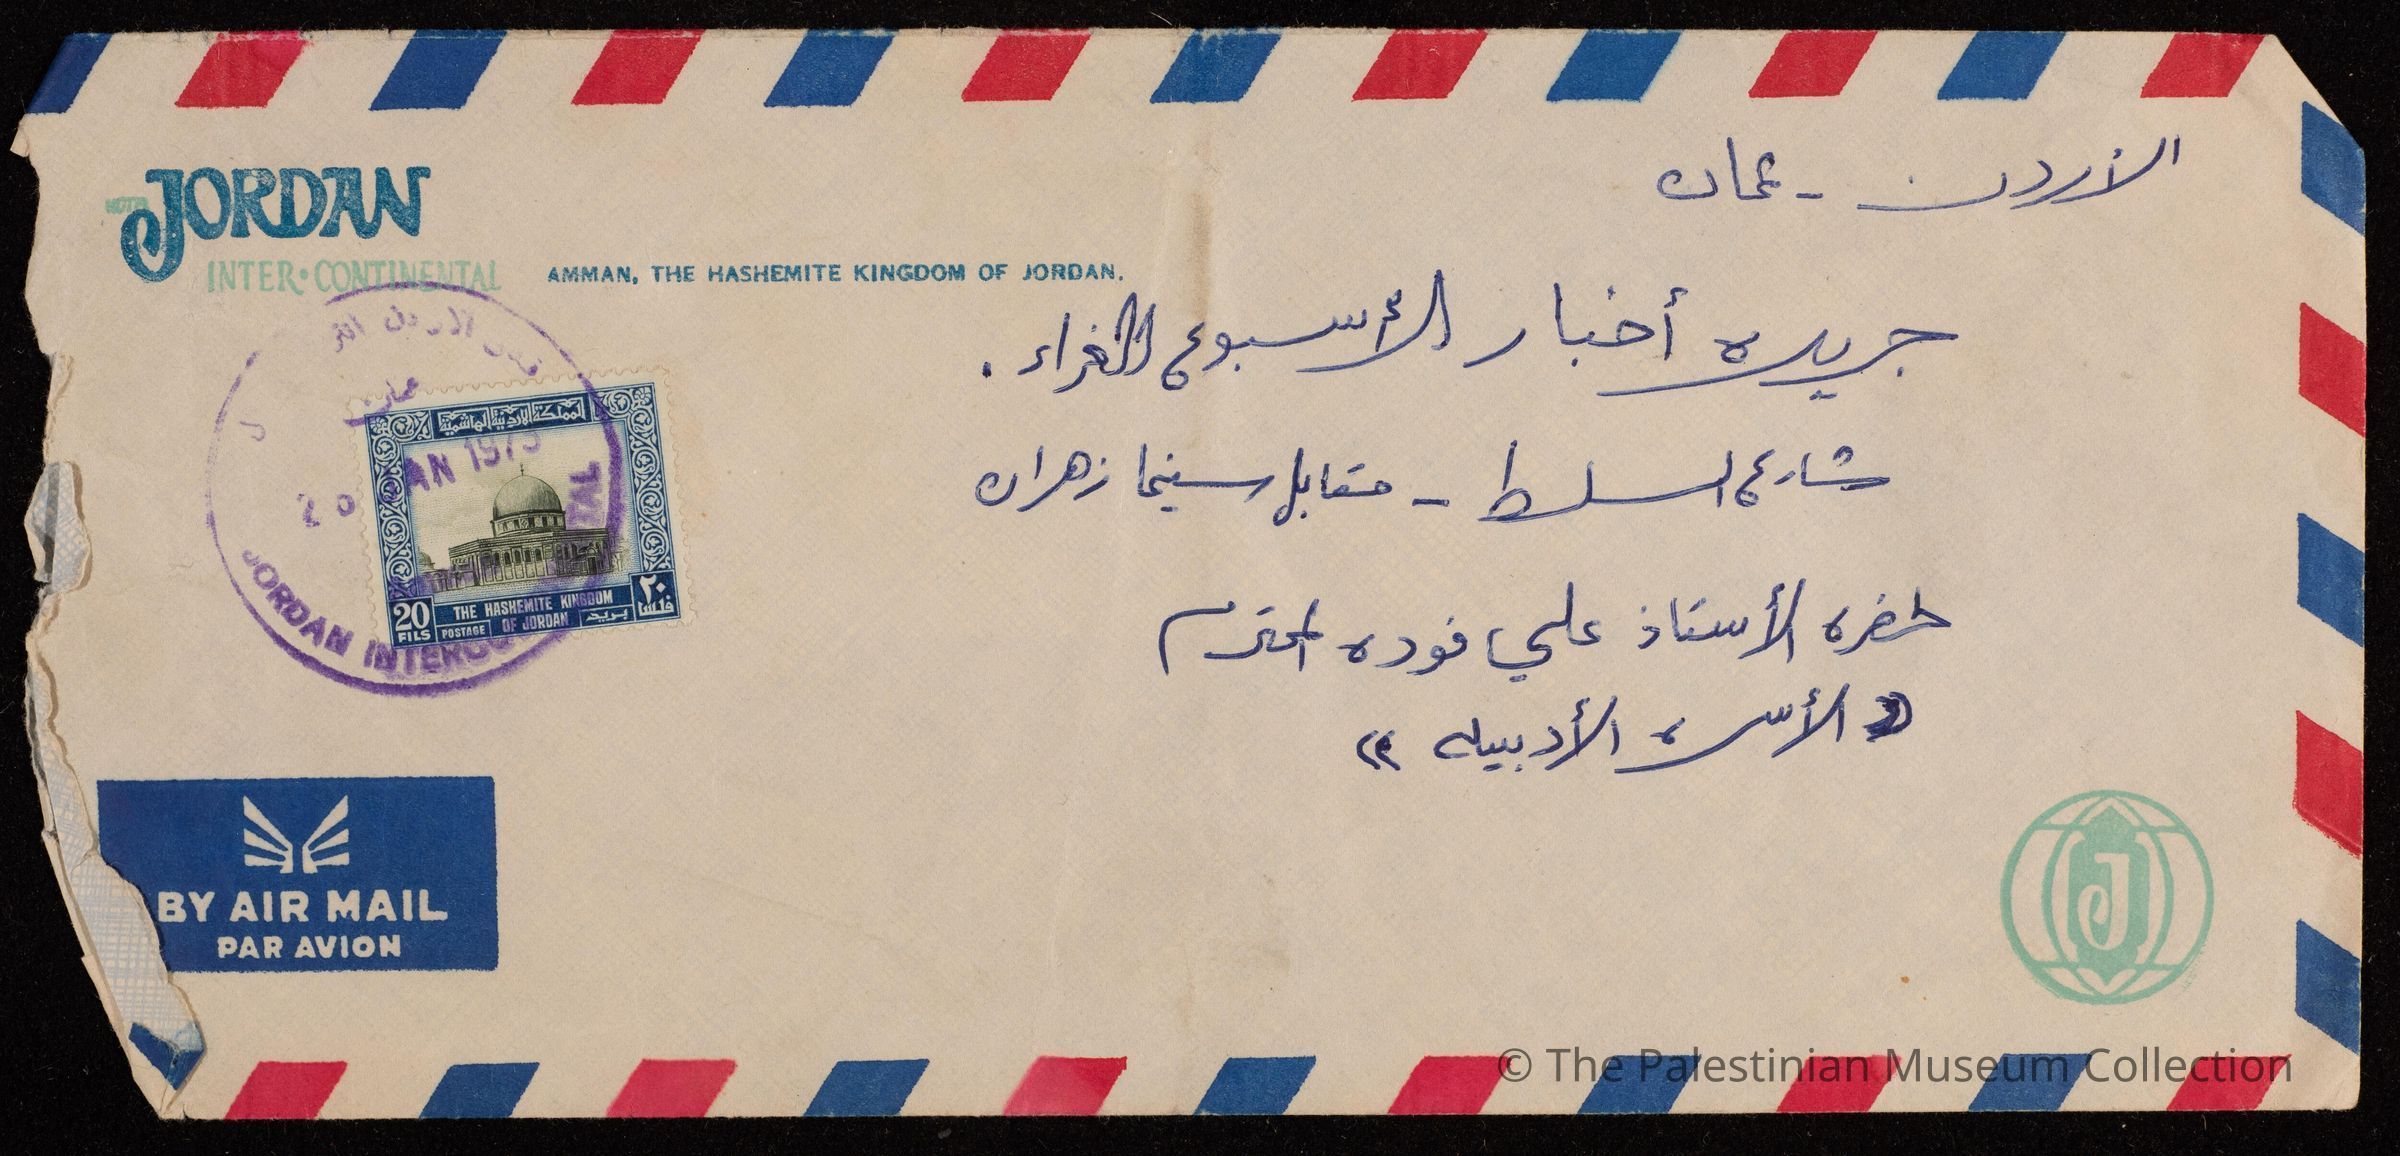 HOTEL
JORDAN
INTER•CONTINENTAL
AMMAN, THE HASHEMITE KINGDOM OF JORDAN.
الأردن - عمان
جريده أخبار الأسبوع الغراء.
شارع السلط - مقابل سينما زهران
حضره الأستاذ علي فوده المحترم
«الأسره الأدبيه»
عمان
20 JAN 1975
JORDAN INTERCONTINENTAL
المملكة الأردنية الهاشمية
20 FILS
THE HASHEMITE KINGDOM OF JORDAN
POSTAGE
بريد
٢٠ فلسا
BY AIR MAIL
PAR AVION
J
© The Palestinian Museum Collection